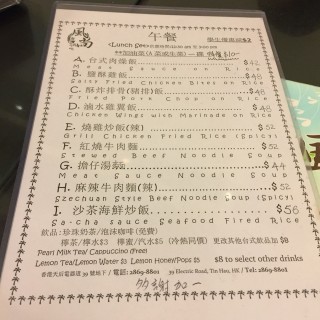 午餐
學生優惠減$2
<Lunch Set>
A. 台式肉燥飯 $42
Meat Sauce on Rice
B. 鹽酥雞飯 $48
Salty Fried Chicken Bites on Rice
C. 酥炸排骨(豬排)飯 $48
Fried Pork Chop on Rice
D. 滷水雞翼飯 $48
Chicken Wings with Marinade on Rice
E. 燒雞炒飯(辣) $52
Grill Chicken Fried Rice (Spicy)
F. 紅燒牛肉麵 $52
Stewed Beef Noodle Soup
G. 擔仔湯麵 $44
Meat Sauce Noodle Soup
H. 麻辣牛肉麵(辣) $52
Szechuan Style Beef Noodle Soup (Spicy)
I. 沙茶海鮮炒飯 $56
Sa-cha sauce Seafood Fired Rice
飲品:珍珠奶茶/泡沫咖啡(免費)
檸茶/檸水$3 檸蜜/汽水$5 (冷熱同價) 更改其他台式飲品加 $8
Pearl Milk Tea/ Cappuccino (Free)
Lemon Tea/Lemon Water $3 Lemon Honey/Pops $5 $8 to select other drinks
香港天后電器道 39 號地下 / 電話: 2869-8801 39 Electric Road, Tin Hau, HK / Tel: 2869-8801
多謝加一